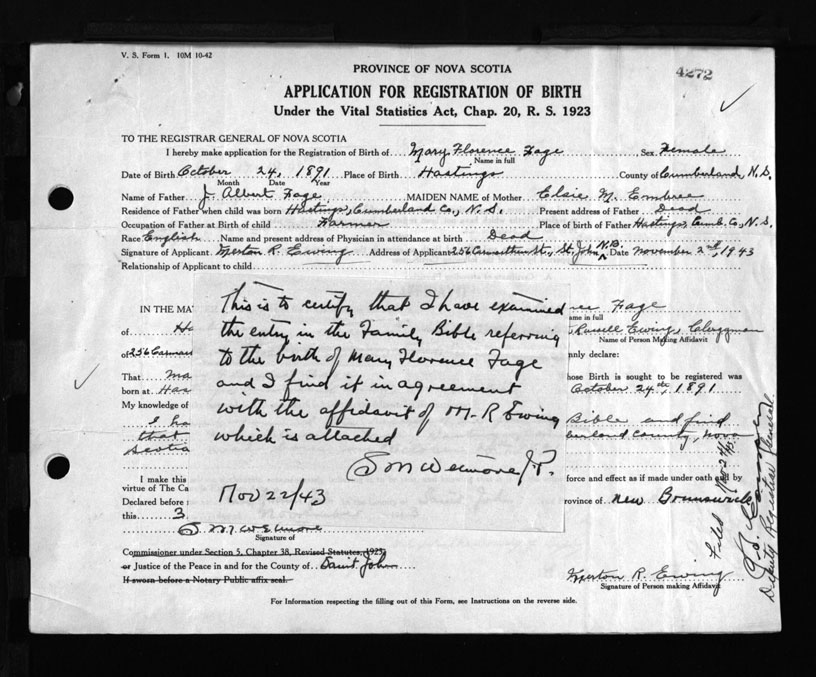 V. S. Form 1. 10M 10-42
4272
PROVINCE OF NOVA SCOTIA
APPLICATION FOR REGISTRATION OF BIRTH
Under the Vital Statistics Act, Chap. 20, R. S. 1923
TO THE REGISTRAR GENERAL OF NOVA SCOTIA
I hereby make application for the Registration of Birth of Mary Florence Fage Sex Female
Name in full
Date of Birth October 24, 1891 Place of Birth Hastings County of Cumberland, N.S.
Month Date Year
Name of Father J. Albert Fage MAIDEN NAME of Mother Elsie M. Embree
Residence of Father when child was born Hastings, Cumberland Co., N.S. Present address of Father Dead
Occupation of Father at Birth of child Farmer Place of birth of Father Hastings, Cumb. Co., N.S.
Race English Name and present address of Physician in attendance at birth Dead
Signature of Applicant Merton R. Ewing Address of Applicant 256 St., St. John N.B. Date November 2nd, 1943
Relationship of Applicant to child
This is to certify that I have examined
the entry in the Family Bible referring
to the birth of Mary Florence Fage
and I find it in agreement
with the affidavit of M. R Ewing
which is attached
S M Wetmore J.P.
Nov 22/43
IN THE MA
Fage
ame in full
of Ha
Russell Ewing, Clergyman
Name of Person Making Affidavit
of 256
nly declare:
That Ma
hose Birth is sought to be registered was
born at Has
October 24th, 1891
My knowledge of
I ha
Bible and find
that
berland County, Nova
Scotia
I make this
force and effect as if made under oath and by
virtue of The Ca
Declared before
rovince of New Brunswick
this 3
S. M. Wetmore
Signature of
Commissioner under Section 5, Chapter 38, Revised Statutes, 1923,
or Justice of the Peace in and for the County of Saint John
If sworn before a Notary Public affix seal.
Merton R. Ewing
Signature of Person making Affidavit
For Information respecting the filling out of this Form, see Instructions on the reverse side.
Filed Nov 24/43
Deputy Registrar General.